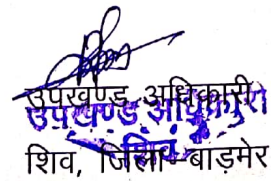 उपखण्ड अधिकारी
उपखण्ड अधिकारी
शिव
शिव, जिला-बाड़मेर